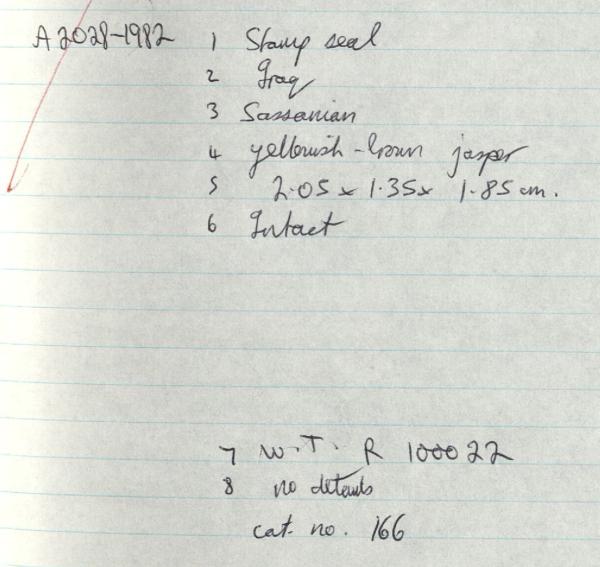 A 2028-1982 1 Stamp seal
2 Iraq
3 Sassanian
4 yellowish-brown jasper
5 2.05 x 1.35 x 1.85 cm.
6 Intact
7 W.T. R 100022
8 no details
cat. no. 166